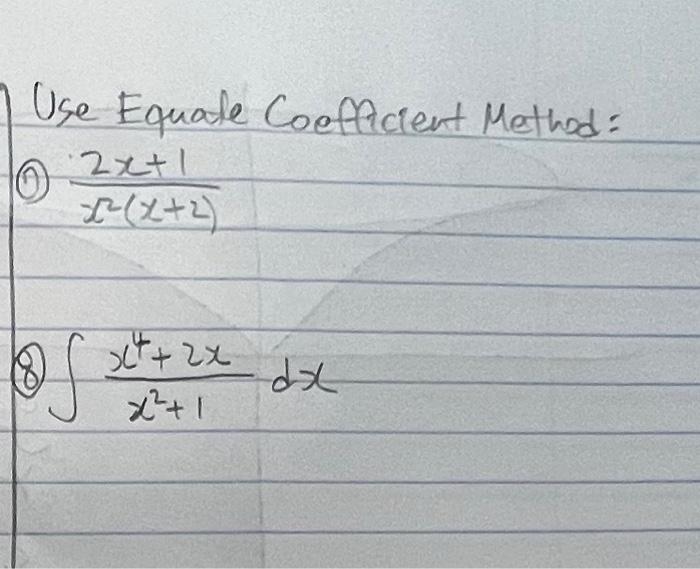 Use Equate Coefficient Method:
⑦ 2x+1 / x²(x+2)
⑧ ∫ x⁴+2x / x²+1 dx